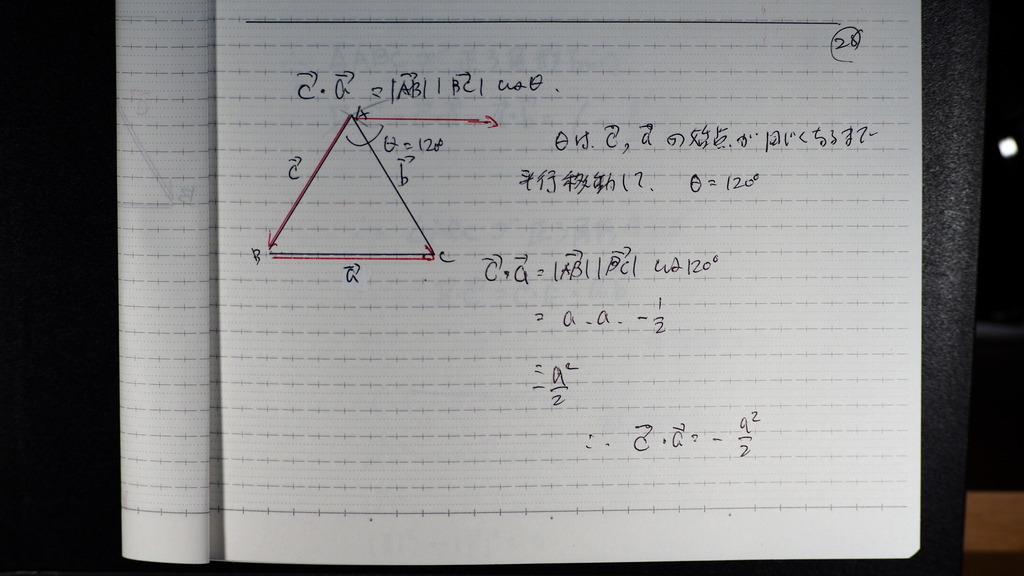 28
c⃗・a⃗ = |AB⃗||BC⃗| cosθ.
A
θ = 120
c⃗
b⃗
θは c⃗, a⃗ の始点が同じくなるまで
平行移動して. θ = 120°
B
C
a⃗
c⃗・a⃗ = |AB⃗||BC⃗| cos120°
= a・a・-1/2
= -a²/2
∴ c⃗・a⃗ = -a²/2